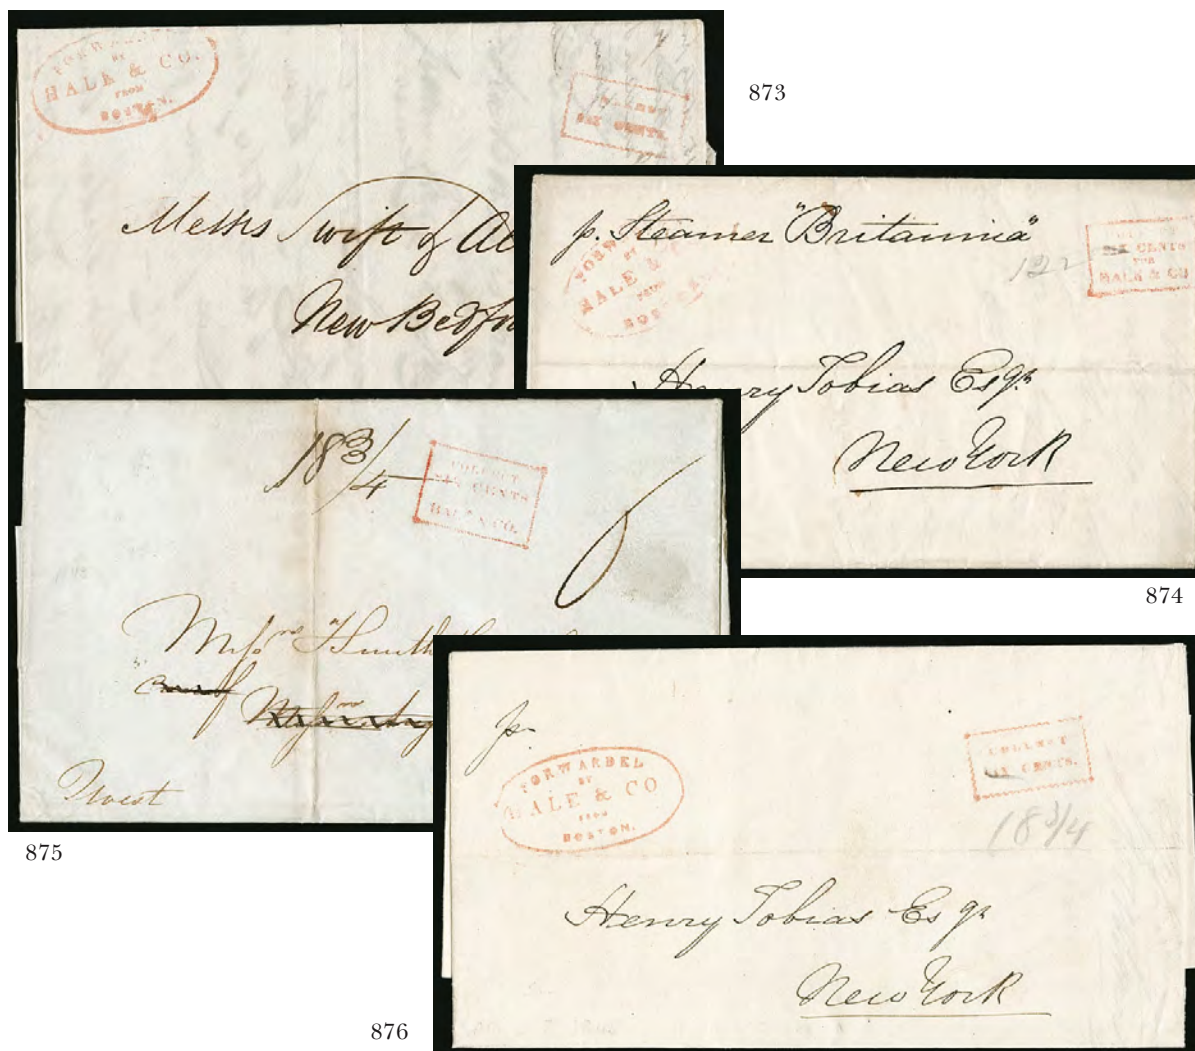 FORWARDED
BY
HALE & CO.
FROM
BOSTON.
SIX CENTS.
873
Messrs Swift &
New Bedfo
p. Steamer "Britannia"
FORWARDED
BY
HALE &
FROM
BOSTON
SIX CENTS
FOR
HALE & CO
Henry Tobias Esqr
New York
874
18 3/4
COLLECT
SIX CENTS
HALE & CO.
6
Messrs
West
875
p.
FORWARDED
BY
HALE & CO
FROM
BOSTON.
COLLECT
SIX CENTS.
18 3/4
Henry Tobias Esqr
New York
876